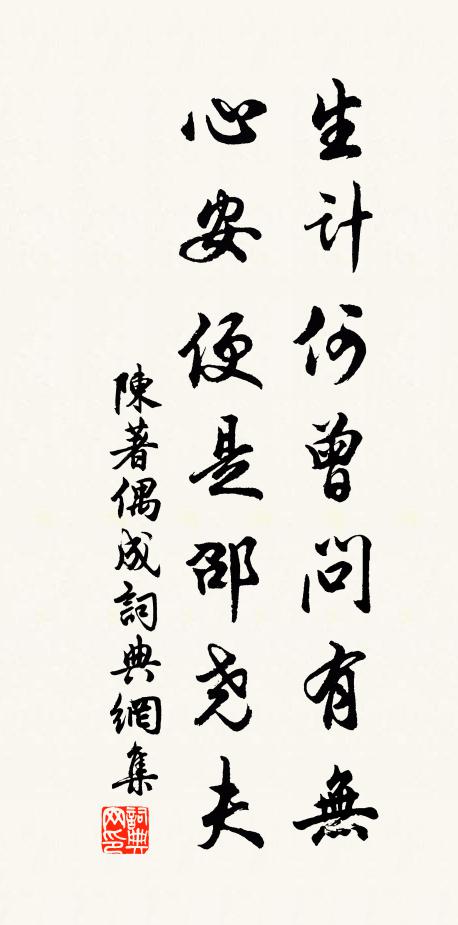 生計何曾問有無
心安便是邵尧夫
陳著偶成詞典網集
詞典網印